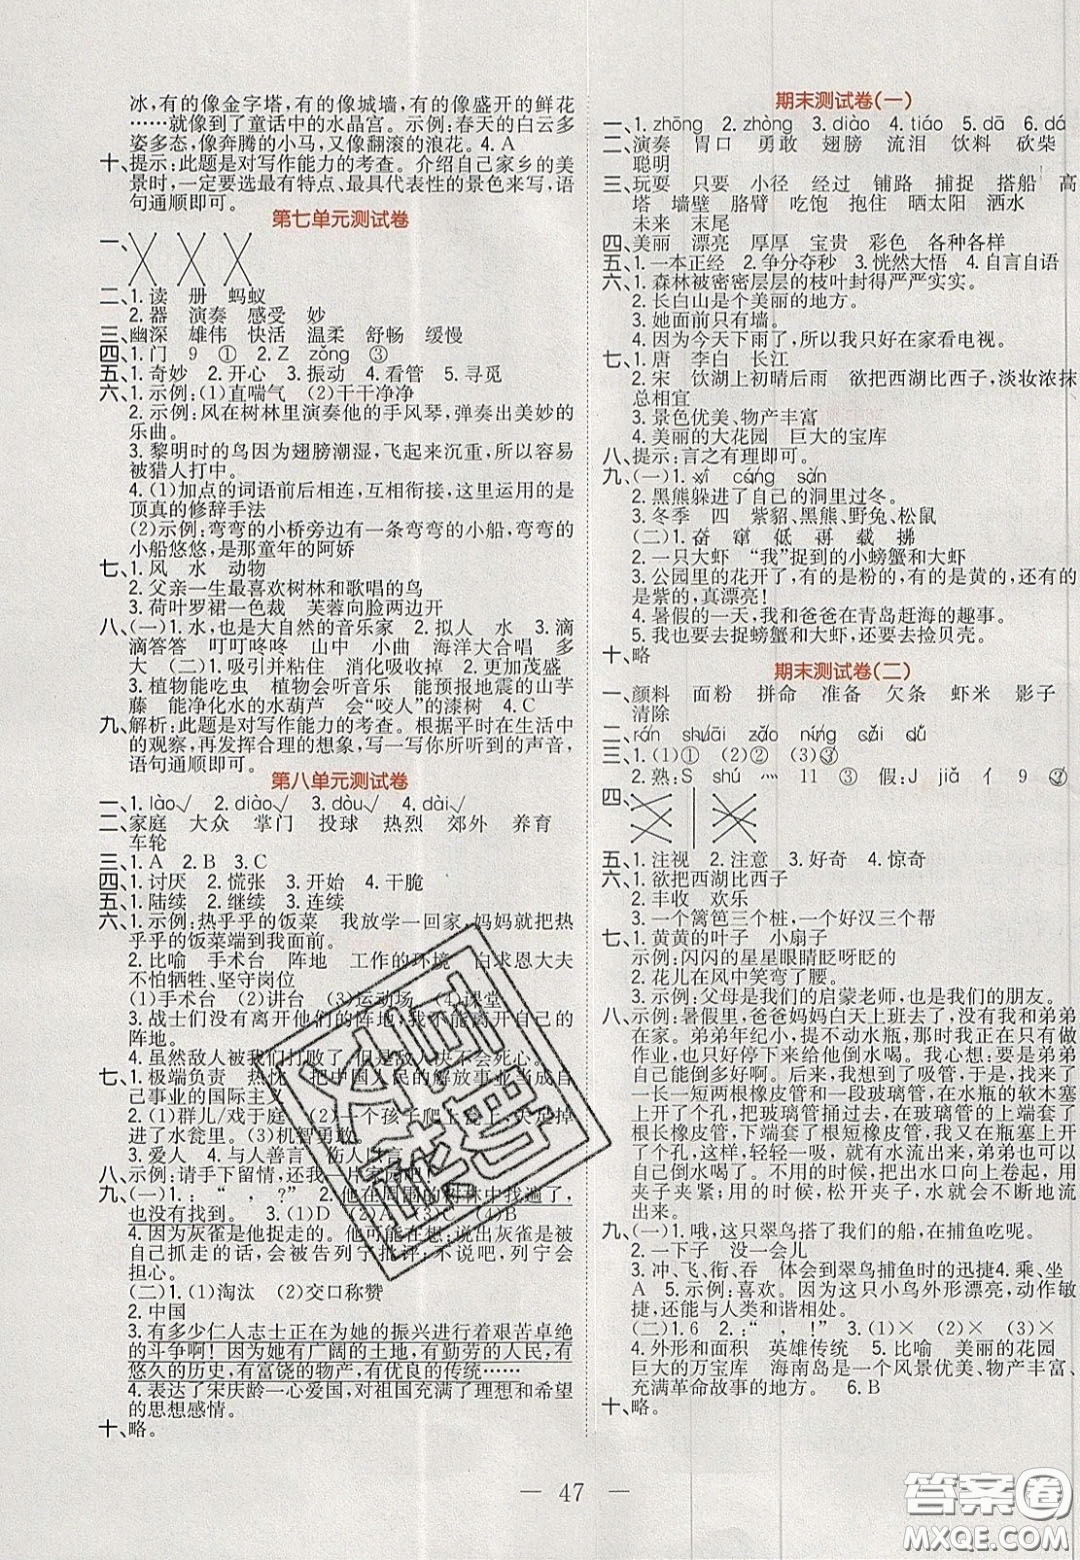 冰,有的像金字塔,有的像城墙,有的像盛开的鲜花
……就像到了童话中的水晶宫。示例:春天的白云多
姿多态,像奔腾的小马,又像翻滚的浪花。4. A
十、提示:此题是对写作能力的考查。介绍自己家乡的美
景时,一定要选最有特点、最具代表性的景色来写,语
句通顺即可。
第七单元测试卷
一、
二、1. 读 册 蚂蚁
2. 器 演奏 感受 妙
三、幽深 雄伟 快活 温柔 舒畅 缓慢
四、1. 门 9 ① 2. Z zǒng ③
五、1. 奇妙 2. 开心 3. 振动 4. 看管 5. 寻觅
六、1. 示例:(1)直喘气 (2)干干净净
2. 示例:风在树林里演奏他的手风琴,弹奏出美妙的
乐曲。
3. 黎明时的鸟因为翅膀潮湿,飞起来沉重,所以容易
被猎人打中。
4. (1)加点的词语前后相连,互相衔接,这里运用的是
顶真的修辞手法
(2)示例:弯弯的小桥旁边有一条弯弯的小船,弯弯的
小船悠悠,是那童年的阿娇
七、1. 风 水 动物
2. 父亲一生最喜欢树林和歌唱的鸟
3. 荷叶罗裙一色裁 芙蓉向脸两边开
八、(一)1. 水,也是大自然的音乐家 2. 拟人 水 3. 滴
滴答答 叮叮咚咚 山中 小曲 海洋大合唱 多
大 (二)1. 吸引并粘住 消化吸收掉 2. 更加茂盛
3. 植物能吃虫 植物会听音乐 能预报地震的山芋
藤 能净化水的水葫芦 会“咬人”的漆树 4. C
九、解析:此题是对写作能力的考查。根据平时在生活中
的观察,再发挥合理的想象,写你所听到的声音,
语句通顺即可。
第八单元测试卷
一、1. lào√ 2. diào√ 3. dòu√ 4. dài√
二、家庭 大众 掌门 投球 热烈 郊外 养育
车轮
三、1. A 2. B 3. C
四、1. 讨厌 2. 慌张 3. 开始 4. 干脆
五、1. 陆续 2. 继续 3. 连续
六、1. 示例:热乎乎的饭菜 我放学一回家,妈妈就把热
乎乎的饭菜端到我面前。
2. 比喻 手术台 阵地 工作的环境 白求恩大夫
不怕牺牲、坚守岗位
(1)手术台 (2)讲台 (3)运动场 (4)课堂
3. 战士们没有离开他们的阵地,我也没有离开我的
阵地。
4. 虽然敌人被我们打败了,但是敌人决不会死心。
七、1. 极端负责 热忱 把中国人民的解放事业当成自
己事业的国际主义
2. (1)群儿/戏于庭 (2)一个孩子爬上瓮,失足掉
进了水瓮里。(3)机智勇敢。
3. 爱人 与人善言 伤人以言
八、示例:请手下留情,还我一片家园吧!
九、(一)1. :“ , ?” 2. 他在周围的树林中找遍了,
也没有找到。 3. (1)D (2)A (3)C (4)B
4. 因为灰雀是他捉走的。他可能在想:说出灰雀是被
自己抓走的话,会被告列宁批评,不说吧,列宁会
担心。
(二)1. (1)淘汰 (2)交口称赞
2. 中国
3. 有多少仁人志士正在为她的振兴进行着艰苦卓绝
的斗争啊!因为她有广阔的土地,有勤劳的人民,有
悠久的历史,有富饶的物产,有优良的传统……
4. 表达了宋庆龄一心爱国,对祖国充满了理想和希望
的思想感情。
十、略。
期末测试卷(一)
一、1. zhōng 2. zhòng 3. diào 4. tiáo 5. dā 6. dá
二、演奏 胃口 勇敢 翅膀 流泪 饮料 砍柴
聪明
三、玩耍 只要 小径 经过 铺路 捕捉 搭船 高
塔 墙壁 胳臂 吃饱 抱住 晒太阳 洒水
未来 末尾
四、美丽 漂亮 厚厚 宝贵 彩色 各种各样
五、1. 一本正经 2. 争分夺秒 3. 恍然大悟 4. 自言自语
六、1. 森林被密密层层的枝叶封得严严实实。
2. 长白山是个美丽的地方。
3. 她面前只有墙。
4. 因为今天下雨了,所以我只好在家看电视。
七、1. 唐 李白 长江
2. 宋 饮湖上初晴后雨 欲把西湖比西子,淡妆浓抹
总相宜
3. 景色优美、物产丰富
4. 美丽的大花园 巨大的宝库
八、提示:言之有理即可。
九、(一)1. xī cáng sàn
2. 黑熊躲进了自己的洞里过冬。
3. 冬季 四 紫貂、黑熊、野兔、松鼠
(二)1. 奋 窜 低 再 载 拂
2. 一只大虾 “我”捉到的小螃蟹和大虾
3. 公园里的花开了,有的是粉的,有的是黄的,还有的
是紫的,真漂亮!
4. 暑假的一天,我和爸爸在青岛赶海的趣事。
5. 我也要去捉螃蟹和大虾,也要去捡贝壳。
十、略
期末测试卷(二)
一、颜料 面粉 拼命 准备 欠条 虾米 影子
清除
二、rán shuāi zǎo níng cǎi dǔ
三、1. (1)② (2)① (3)③
2. 熟:S shú 灬 11 ③ 假:J jiǎ 亻 9 ②
四、
五、1. 注视 2. 注意 3. 好奇 4. 惊奇
六、1. 欲把西湖比西子
2. 丰收 欢乐
3. 一个篱笆三个桩,一个好汉三个帮
七、1. 黄黄的叶子 小扇子
示例:闪闪的星星眼睛眨呀眨的
2. 花儿在风中笑弯了腰。
3. 示例:父母是我们的启蒙老师,也是我们的朋友。
八、示例:暑假里,爸爸妈妈白天上班去了,没有我和弟弟
在家。弟弟年纪小,提不动水瓶,我常常因为给弟弟
作业,也不能及时给他倒水喝。我心想:要是弟弟
自己能喝到水就好了。我想到了吸管,于是我找来
一长一短两根橡皮管和一段玻璃管,在水瓶的软木塞
上开了个孔,把玻璃管插过去,在玻璃管的上端套了
根长橡皮管,下端套了根短橡皮管,在瓶塞上开了个
风口,轻轻一吸,就有水流出来,弟弟可以自己喝
水了!不用的时候,把出水口向上卷起,用
夹子夹紧;用的时候,松开夹子,水就会不断地流
出来。
九、(一)1. 哦,这只翠鸟搭了我们的船,在捕鱼吃呢。
2. 一下子 没一会儿
3. 冲、飞、衔、吞 体会到翠鸟捕鱼的迅捷 4. 乘、坐
A 5. 示例:喜欢。因为这只小鸟外形漂亮,动作敏
捷,还能与人类和谐相处。
(二)1. 6 2. :“ , !” 3. (1)× (2)× (3)×
4. 外形和面积 英雄传统 5. 比喻 美丽的花园
巨大的万宝库 海南岛是一个风景优美、物产丰富、
充满革命故事的地方。 6. B
十、略。
47
答案圈
MXQE.COM